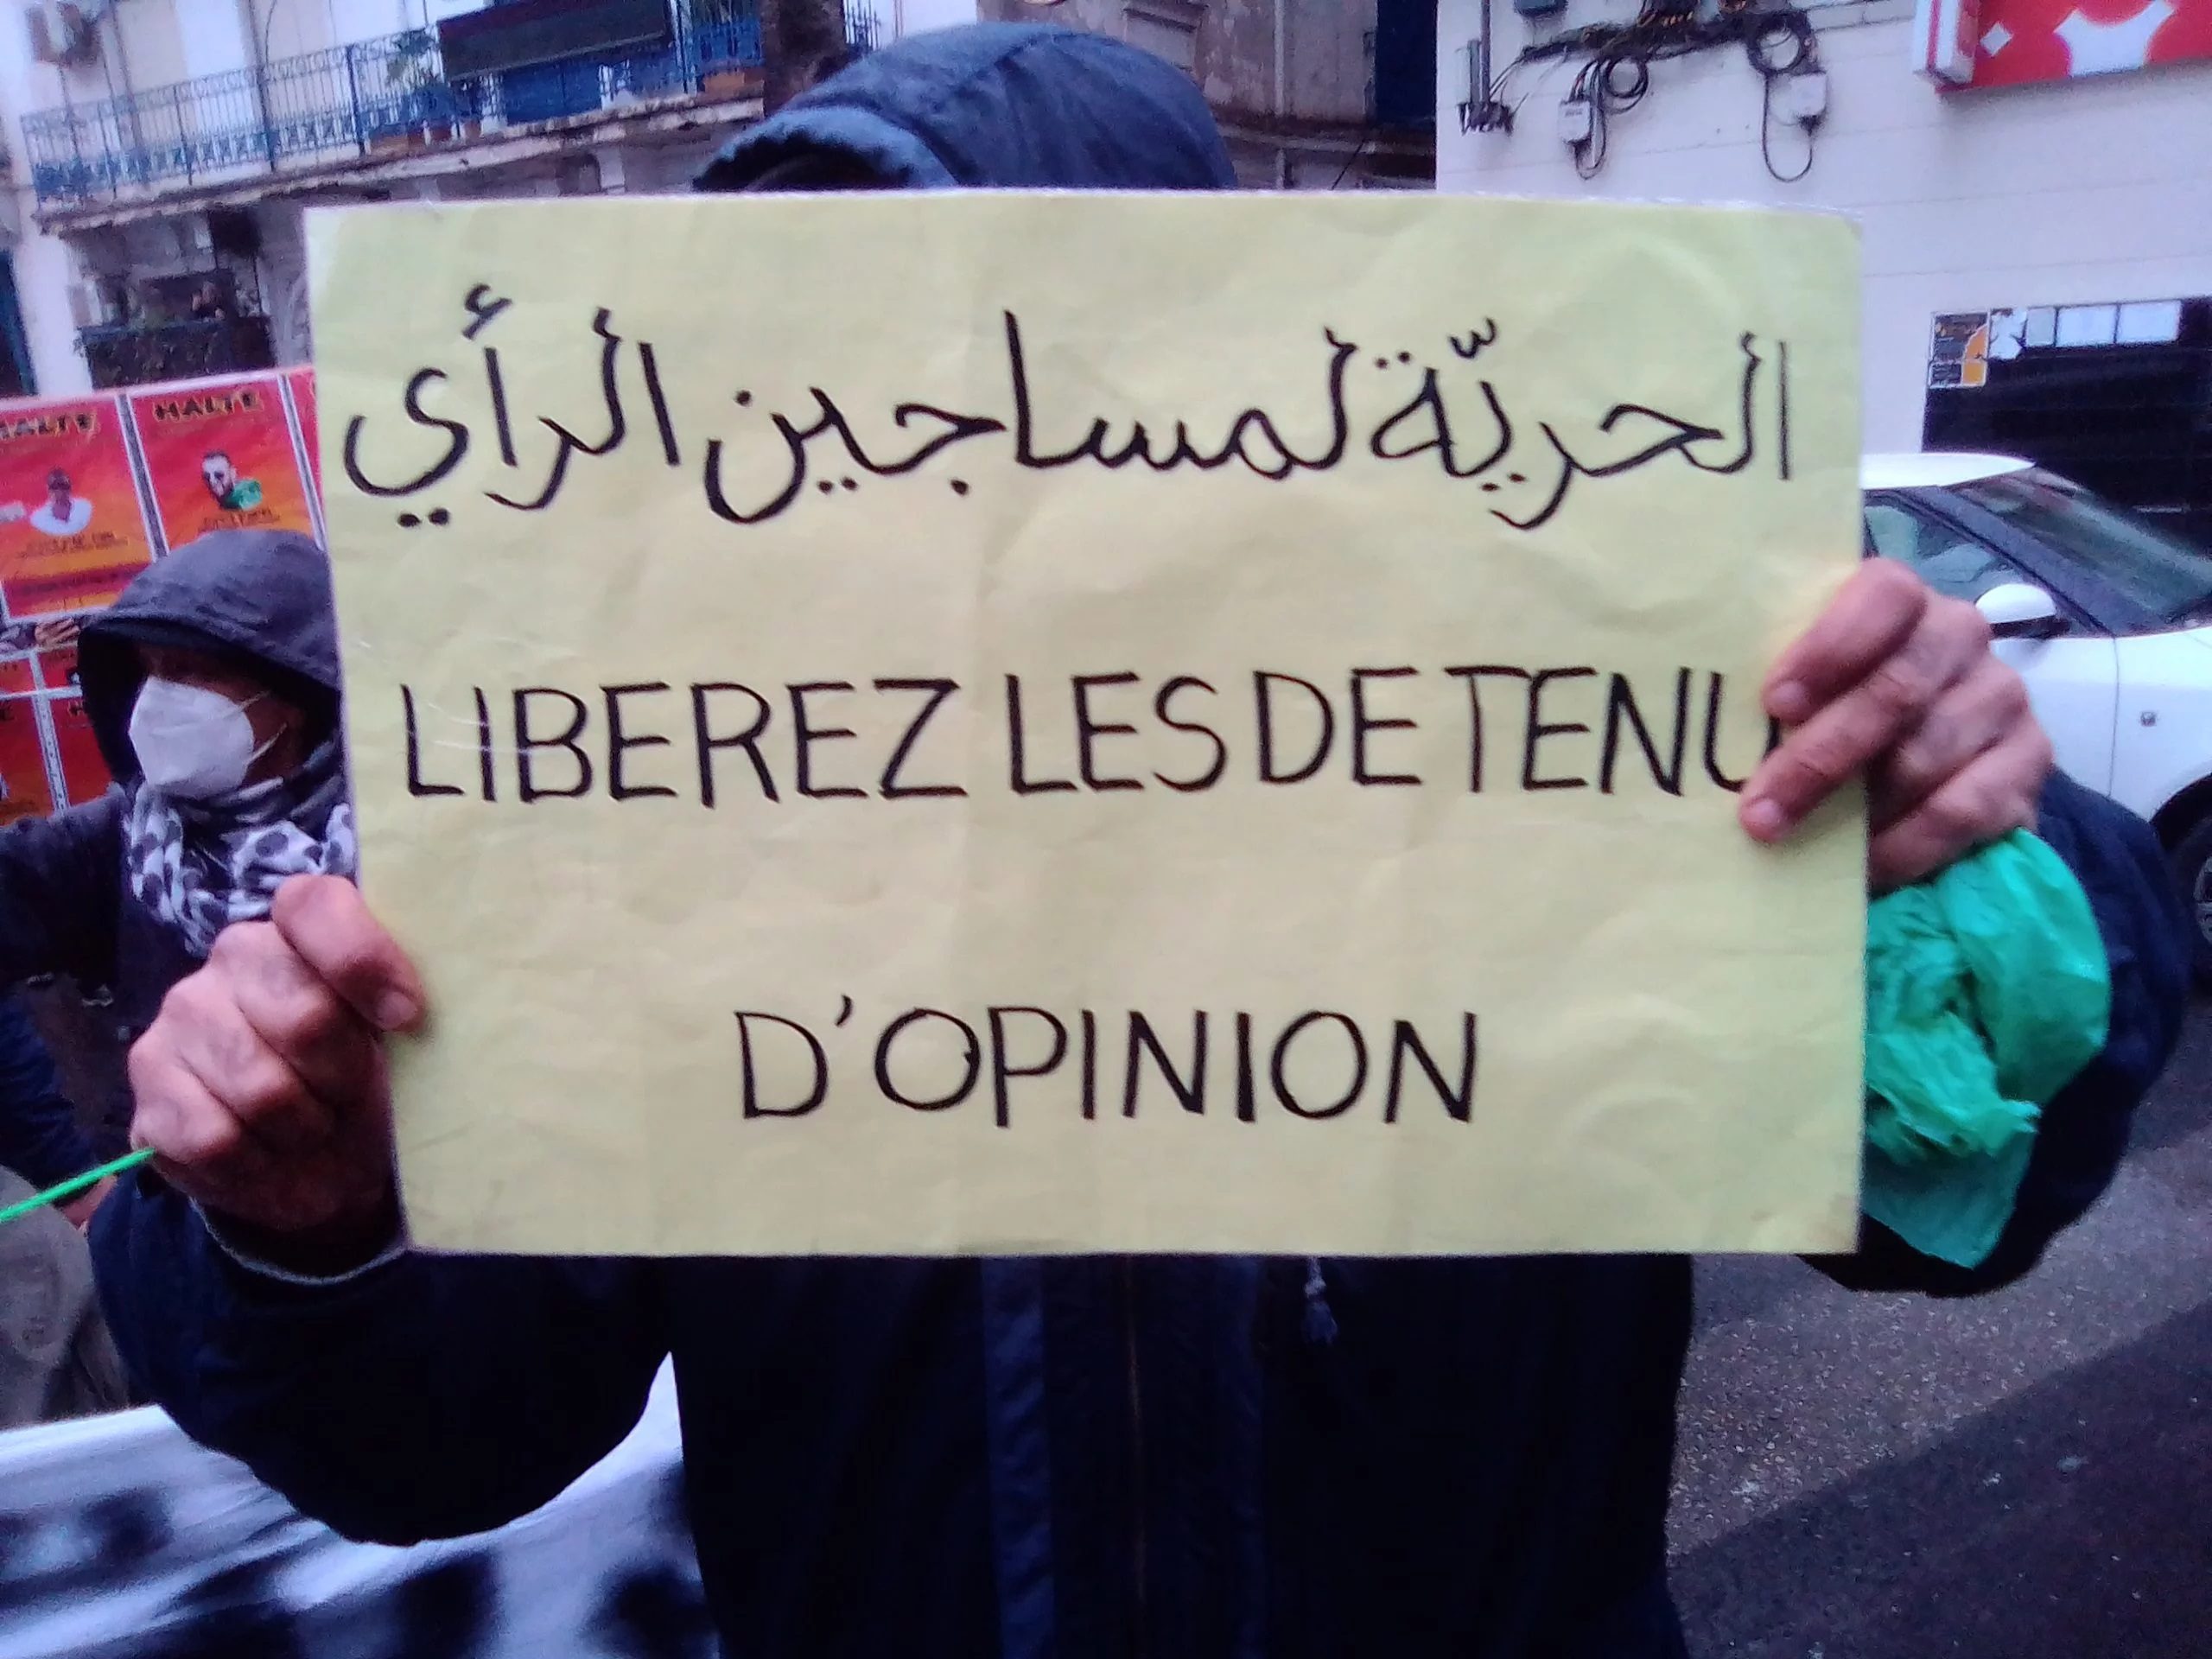 الحريّة لمساجين الرأي
LIBEREZ LES DETENU
D'OPINION
HALTE
HALTE